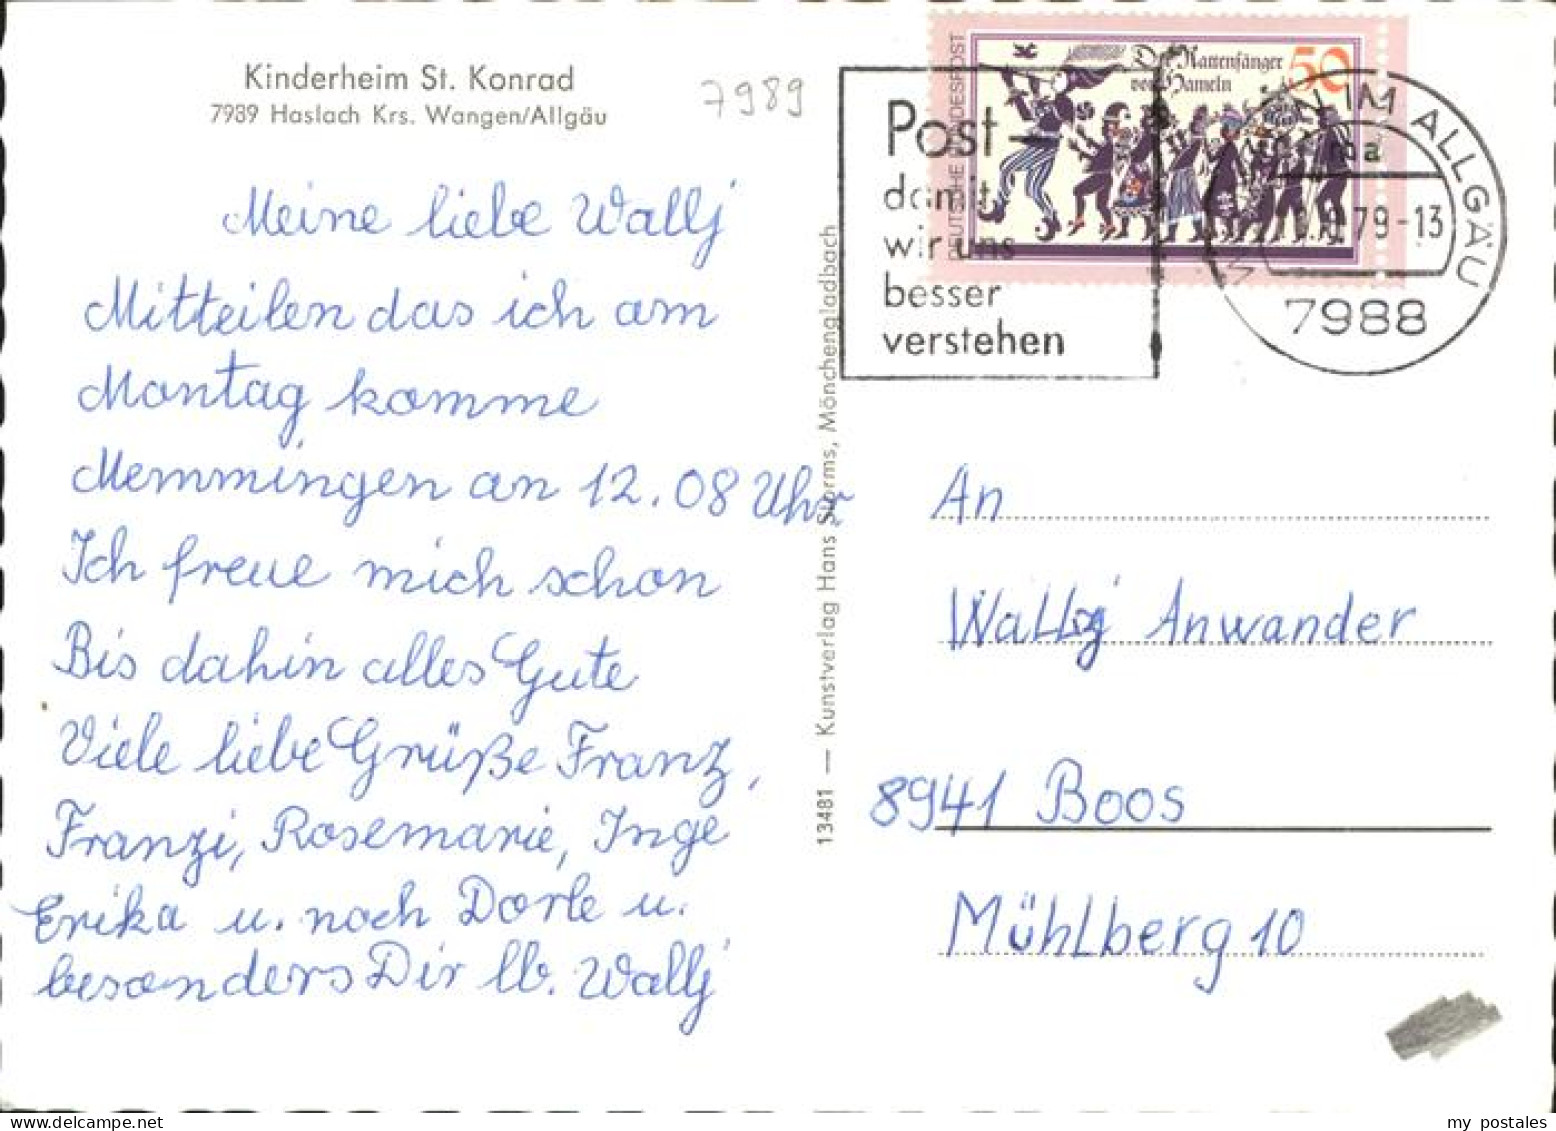 Kinderheim St. Konrad
7989 Haslach Krs. Wangen/Allgäu
7989
Meine liebe Wally
Mitteilen das ich am
Montag komme
Memmingen an 12.08 Uhr
Ich freue mich schon
Bis dahin alles Gute
Viele liebe Grüße Franz,
Franzi, Rosemarie, Inge
Erika u. noch Dorle u.
besonders Dir lb. Wally
13481 — Kunstverlag Hans Storms, Mönchengladbach
Post-
damit
wir uns
besser
verstehen
DEUTSCHE BUNDESPOST
Der Rattenfänger
von Hameln
50
IM ALLGÄU
79-13
7988
An
Wally Anwander
8941 Boos
Mühlberg 10
my postales